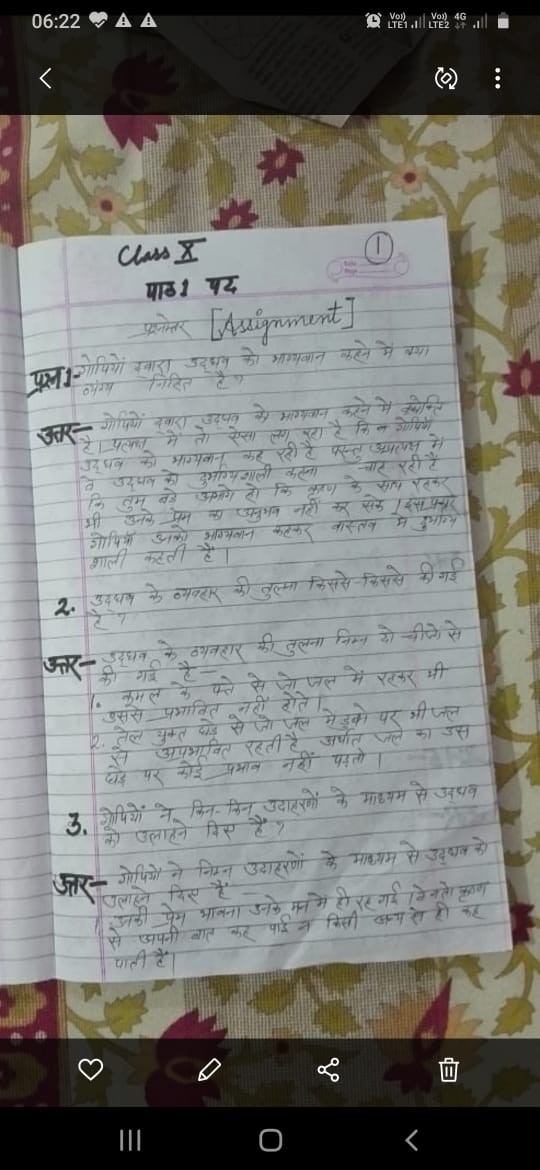 06:22
Vo) LTE1 Vo) LTE2 4G
1
Class X
पाठ 1 पद
प्रश्नोत्तर [Assignment]
प्रश्न 1- गोपियों द्वारा उद्धव को भाग्यवान कहने में क्या
व्यंग्य निहित है?
उत्तर- गोपियों द्वारा उद्धव को भाग्यवान कहने में वक्रोक्ति
है। प्रत्यक्ष में तो ऐसा लग रहा है कि गोपियाँ
उद्धव को भाग्यवान कह रही है परन्तु अप्रत्यक्ष में
वे उद्धव को दुर्भाग्यशाली कहना चाह रही है
कि तुम बड़े अभागे हो कि कृष्ण के साथ रहकर
भी उनके प्रेम का अनुभव नहीं कर सके। इस प्रकार
गोपियाँ उनको भाग्यवान कहकर वास्तव में दुर्भाग्य
शाली कहती हैं।
2. उद्धव के व्यवहार की तुलना किससे-किससे की गई
है?
उत्तर- उद्धव के व्यवहार की तुलना निम्न दो चीजों से
की गई है-
1. कमल के पत्ते से जो जल में रहकर भी
उससे प्रभावित नहीं होते।
2. तेल युक्त घड़े से जो जल में डूबो पर भी जल
से अप्रभावित रहती है अर्थात जल का उस
घड़े पर कोई प्रभाव नहीं पड़तो।
3. गोपियों ने किन-किन उदाहरणों के माध्यम से उद्धव
को उलाहने दिए हैं?
उत्तर- गोपियों ने निम्न उदाहरणों के माध्यम से उद्धव को
उलाहने दिए हैं-
1. उनकी प्रेम भावना उनके मन में ही रह गई। वे न तो कृष्ण
से अपनी बात कह पाई न किसी अन्य से ही कह
पाती हैं।